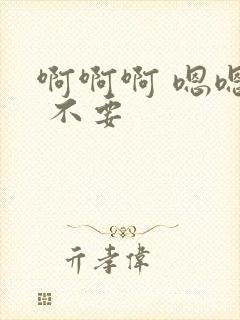 啊啊啊 嗯嗯
不要
亓孝偉